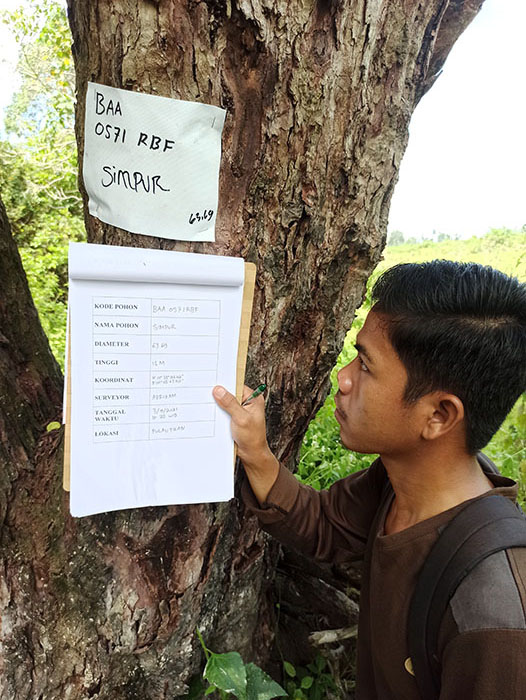 BAA
0571 RBF
SIMPUR
63,69
KODE POHON BAA 0571RBF
NAMA POHON SIMPUR
DIAMETER 63.69
TINGGI 15 M
KOORDINAT
SURVEYOR
TANGGAL
WAKTU
LOKASI